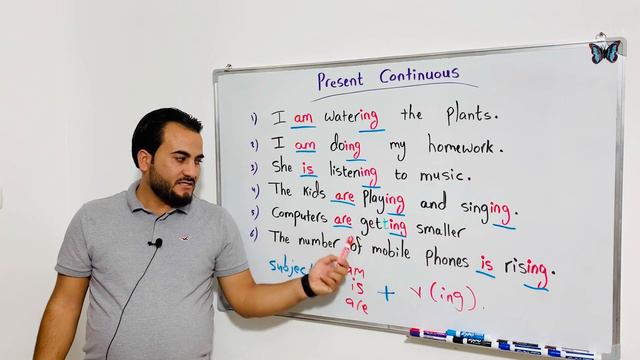 Present Continuous
1) I am watering the plants.
2) I am doing my homework.
3) She is listening to music.
4) The Kids are playing and singing.
5) Computers are getting smaller
6) The number of mobile phones is rising.
am
is
are
+ v (ing).